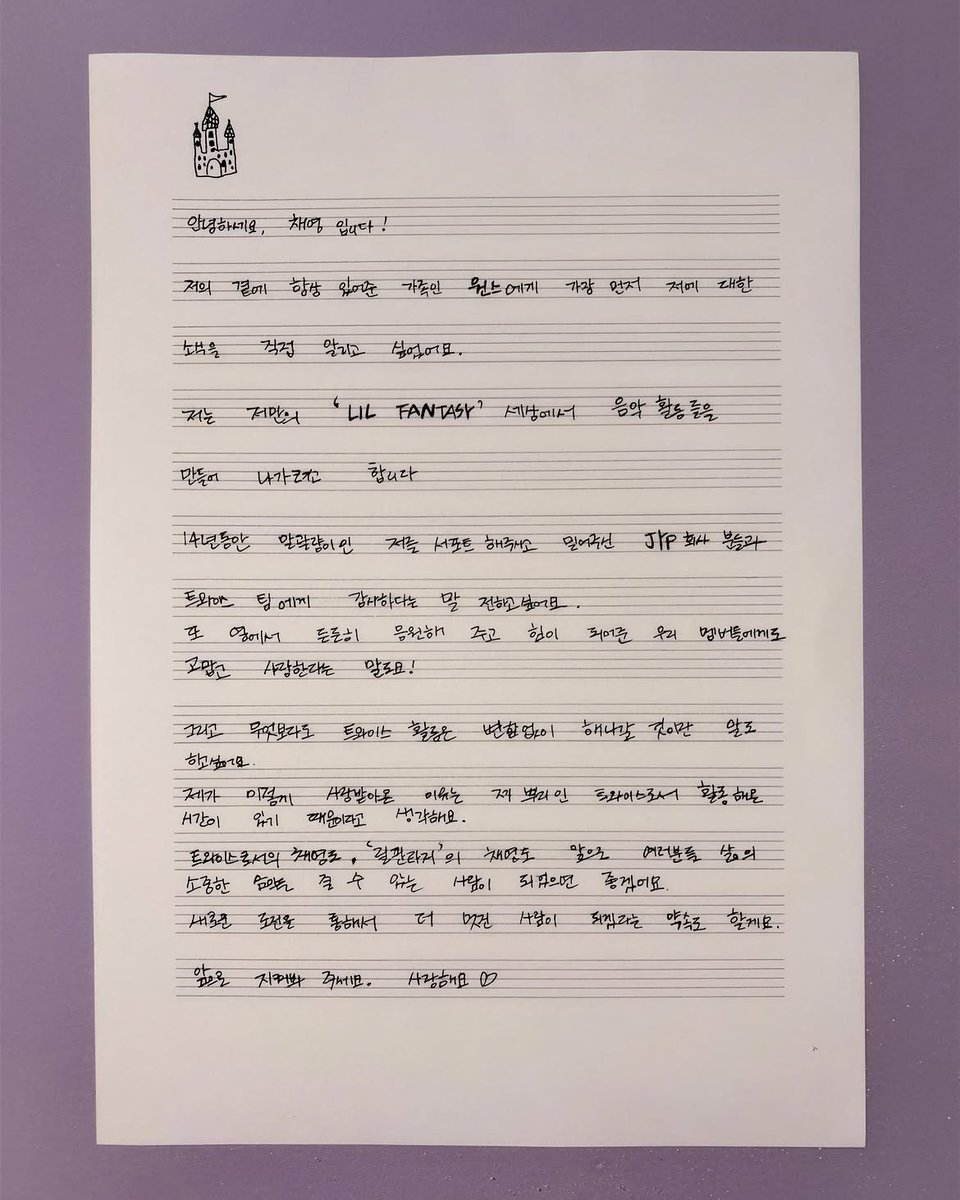 안녕하세요, 채영 입니다!
저의 곁에 항상 있어준 가족인 원스에게 가장 먼저 저에 대한
소식을 직접 알리고 싶었어요.
저는 저만의 'LIL FANTASY' 세상에서 음악 활동들을
만들어 나가려고 합니다
14년동안 말괄량이인 저를 서포트 해주시고 믿어주신 JYP 회사 분들과
트와이스 팀에게 감사하다는 말 전하고 싶어요.
또 옆에서 든든히 응원해 주고 힘이 되어준 우리 멤버들에게도
고맙고 사랑한다는 말도요!
그리고 무엇보다도 트와이스 활동은 변함없이 해나갈 것이란 말도
하고싶어요.
제가 이렇게 사랑받아온 이유는 제 뿌리인 트와이스로서 활동해온
시간이 있기 때문이라고 생각해요.
트와이스로서의 채영도, '릴판타지'의 채영도 앞으로 여러분들 삶의
소중한 음악을 줄 수 있는 사람이 되었으면 좋겠어요.
새로운 도전을 통해서 더 멋진 사람이 되겠다는 약속도 할게요.
앞으로 지켜봐 주세요. 사랑해요 ♡